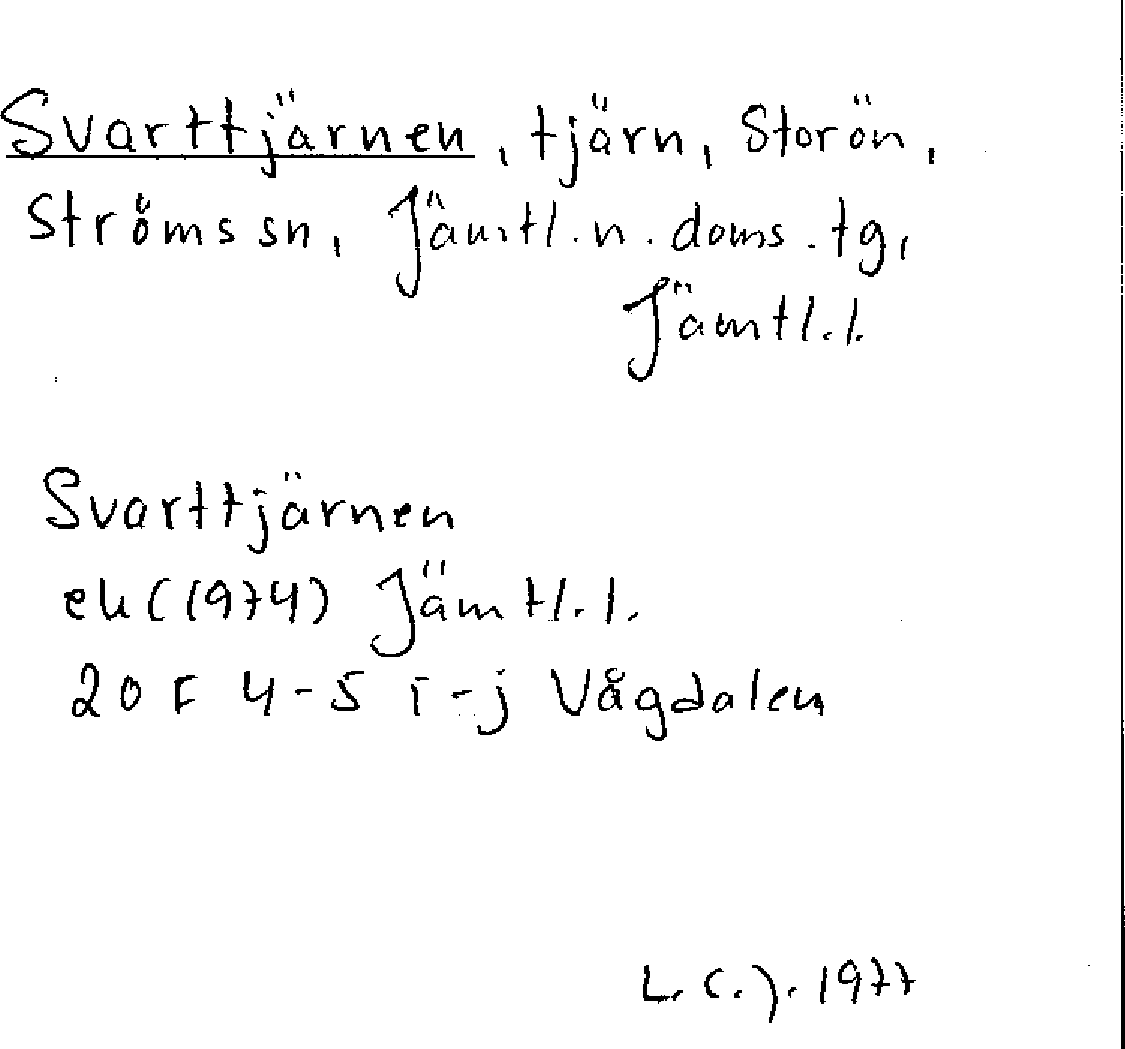 Svarttjärnen, tjärn, Storön,
Ströms sn, Jämtl. n. doms. tg,
Jämtl. l.
Svarttjärnen
ek (1974) Jämtl. l.
20 F 4-5 i-j Vågdalen
L. C. J. 1977